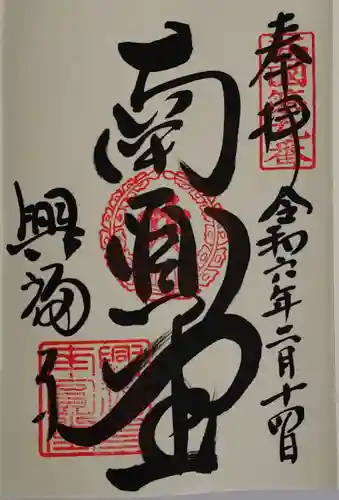 奉拝
令和六年二月十四日
南円堂
興福寺